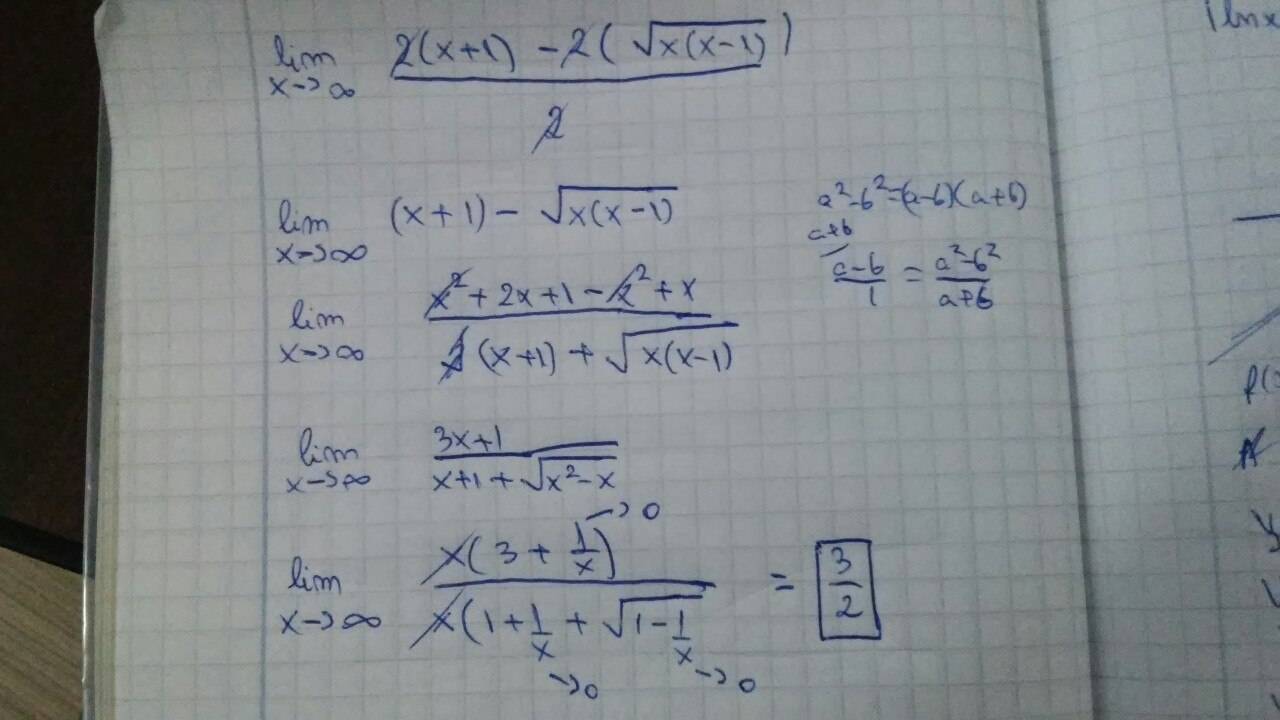 lim x→∞ (2(x+1) − 2(√(x(x−1)))) / 2
lim x→∞ (x+1) − √(x(x−1))
a²−b²=(a−b)(a+b)
a+b
(a−b)/1 = (a²−b²)/(a+b)
lim x→∞ (x²+2x+1−x²+x) / ((x+1) + √(x(x−1)))
lim x→∞ (3x+1) / (x+1+√(x²−x))
lim x→∞ x(3 + 1/x) / x(1 + 1/x + √(1−1/x) = 3/2
→0
→0 →0
|lnx